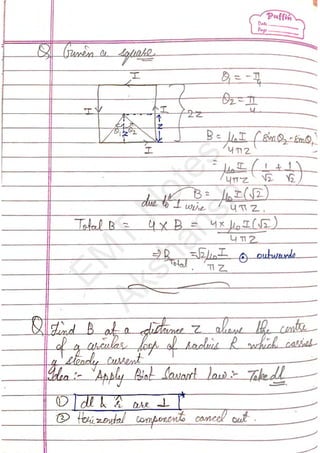 Puffin
Date
Page
Q, Given a square
I
θ₁ = -π/4
I
I
θ₁ θ₂
z
2z
θ₂ = π/4
I
B = μ₀I/4πz (sinθ₂ - sinθ₁)
= μ₀I/4πz (1/√2 + 1/√2)
due to 1 wire B = μ₀I(√2)/4πz.
Total B = 4 × B = 4×μ₀I(√2)/4πz
⇒ B total = √2μ₀I/πz ⊙ outwards
Q, Find B at a distance z above the centre
of a circular loop of radius R which carries
a steady current.
Idea :- Apply Biot Savart law :- Take dl
① dl & r̂ are ⊥ *
② Horizontal components cancel out.
EMT Notes